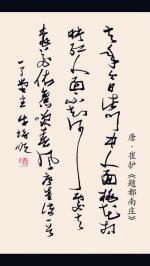 唐·崔护《题都南庄》
去年今日此门中人面桃花相
映红人面不知何处去
桃花依旧笑春风